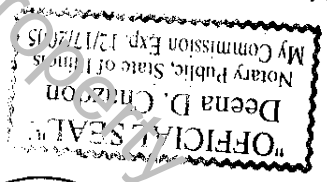 "OFFICIAL SEAL"
Deena D.
Notary Public, State of Illinois
My Commission Exp. 12/17/2015
Property